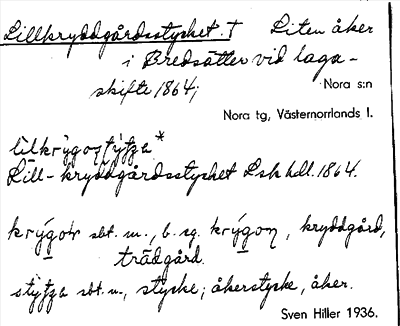 Lillkryddgårdsstycket. † Liten åker
i Bredsätter vid laga-
skifte 1864;
Nora s:n
Nora tg, Västernorrlands l.
Lill-kryddgårdsstycket Lsk hdl. 1864.
sbt. m., b. sg. , kryddgård,
trädgård.
sbt. n., stycke; åkerstycke, åker.
Sven Hiller 1936.